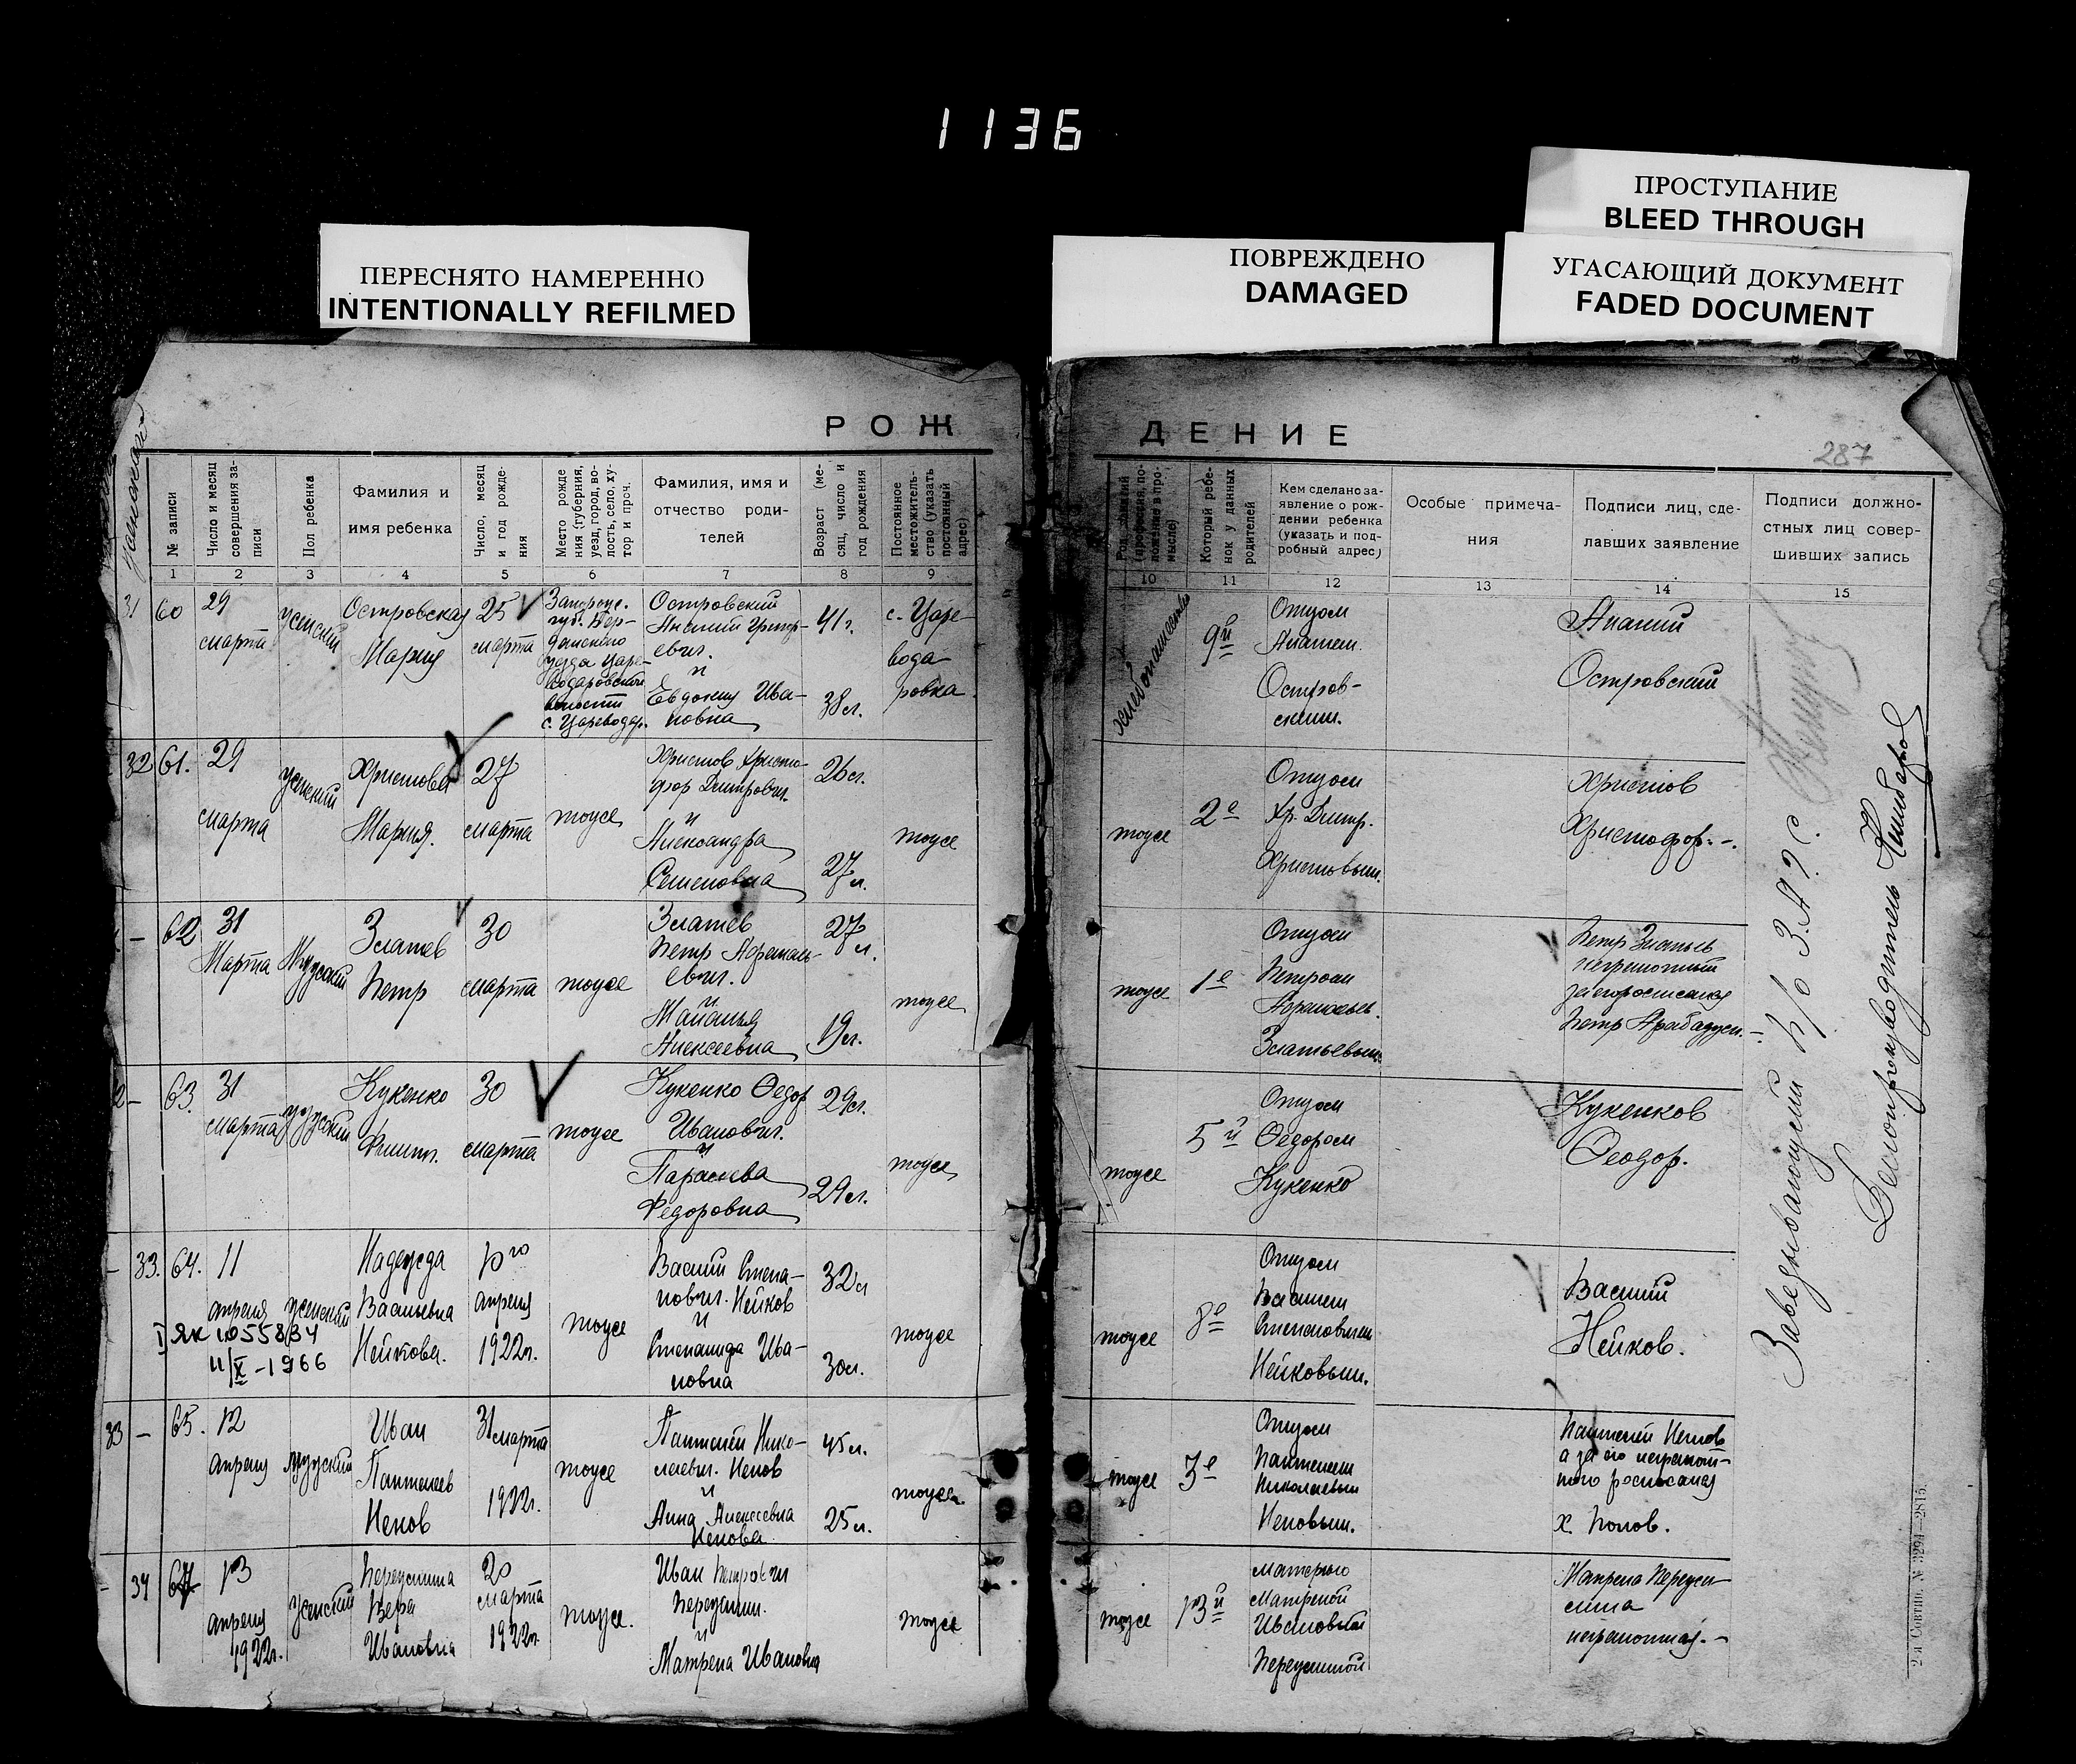 1136
ПРОСТУПАНИЕ
BLEED THROUGH
ПЕРЕСНЯТО НАМЕРЕННО
INTENTIONALLY REFILMED
ПОВРЕЖДЕНО
DAMAGED
УГАСАЮЩИЙ ДОКУМЕНТ
FADED DOCUMENT
РОЖ
ДЕНИЕ
287
№ записи
Число и месяц
совершения за-
писи
Пол ребенка
Фамилия и
имя ребенка
Число, месяц
и год рожде-
ния
Место рожде
ния (губерния,
уезд, город, во-
лость, село, ху-
тор и проч.
Фамилия, имя и
отчество роди-
телей
Возраст (ме-
сяц, число и
год рождения
Постоянное
местожитель-
ство (указать
постоянный
адрес)
Род занятий
(профессия, по-
ложение в про-
мысле)
Который ребе-
нок у данных
родителей
Кем сделано за-
явление о рож-
дении ребенка
(указать и под-
робный адрес)
Особые примеча-
ния
Подписи лиц, сде-
лавших заявление
Подписи должно-
стных лиц совер-
шивших запись
1 2 3 4 5 6 7 8 9 10 11 12 13 14 15
31 60
29
марта
женский
Островская
Мария
25
марта
Запорож.
губ. Бер-
дянского
уезда Царе-
водаровской
волости
с. Цареводар.
Островский
Ананий Григор-
евич.
и
Евдокия Ива-
новна
41 г.
38 л.
с. Царе-
вода
ровка
хлебопашество
9й
Отцом
Ананием
Остров-
ским.
Ананий
Островский
32 61.
29
марта
женский
Христова
Мария.
27
марта
тоже
Христов Христо-
фор Дмитрович.
и
Александра
Семеновна
26 л.
27 л.
тоже
тоже
2е
Отцом
Хр. Дмитр.
Христовым.
Христов
Христофор.-.
- 62
31
Марта
Мужский
Златев
Петр
30
марта
тоже
Златев
Петр
евич.
и
Алексеевна
27 л.
19 л.
тоже
тоже
1е
Отцом
Петром
Златьевым.
Петр Златьев
неграмотный
за его росписался
Петр
63.
31
марта
мужский
Кукенко
Филип.
30
марта
тоже
Кукенко Федор
Иванович.
и
Параскева
Федоровна
29 л.
29 л.
тоже
тоже
5й
Отцом
Федором
Кукенко
Кукенков
Феодор.
33. 64.
11
апреля
женский
I ЯК 1055834
11/X-1966
Надежда
Васильевна
Нейкова.
10го
апреля
1922г.
тоже
Василий Степа-
нович. Нейков
и
Степанида Ива-
новна
32 л
30 л.
тоже
тоже
8е
Отцом
Василием
Степановичем
Нейковым.
Василий
Нейков.
33 - 65.
12
апреля
мужский
Иван
Пантелеев
Ненов
31 марта
1922г.
тоже
Пантелей Нико-
лаевич. Ненов
и
Анна Алексеевна
Ненова
45 л.
25 л.
тоже
тоже
3е
Отцом
Пантелеем
Николаевым
Неновым.
Пантелей Ненов
а за его неграмот-
ного росписался
Х. Попов.
34 67
13
апреля
1922г.
женский
Вера
Ивановна
20
марта
1922г.
тоже.
Иван Петрович
и
Матрена Ивановна
тоже
тоже
13й
матерью
Матреной
Ивановной
Матрена
неграмотная.-
Заведывающий П/о З.А.Г.С.
Делопроизводитель
2-я Совтип. № 3294—2815.